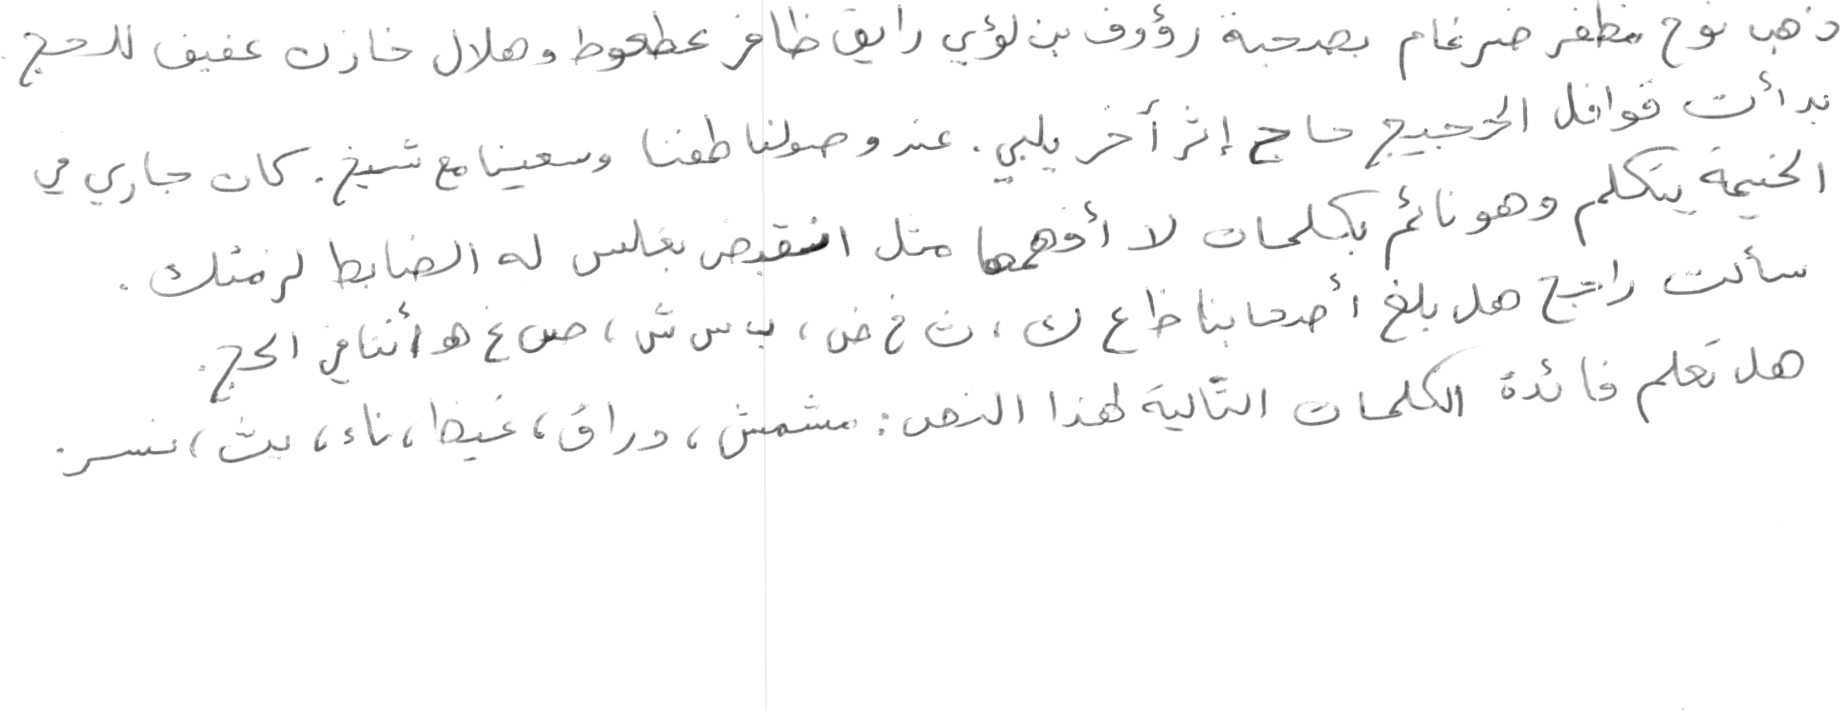 ذهب نوح مظفر ضرغام بصحبة رؤوف بن لؤي رايق ظافر عطعوط وهلال خازن عفيف للحج.
بدأت قوافل الحجيج حاج إثر أخر يلبي. عند وصولنا طفنا وسعينا مع شيخ. كان جاري في
الخيمة يتكلم وهو نائم بكلمات لا أفهمها مثل انقبض بغلس له الضابط لرفئك.
سألت راجح هل بلغ أصحابنا ظ ع ك، ث خ ض، ب س ش، ص غ هـ أننا في الحج.
هل تعلم فائدة الكلمات التالية لهذا النص: مشمش، دراق، غيظ، ناء، بث، نسر.